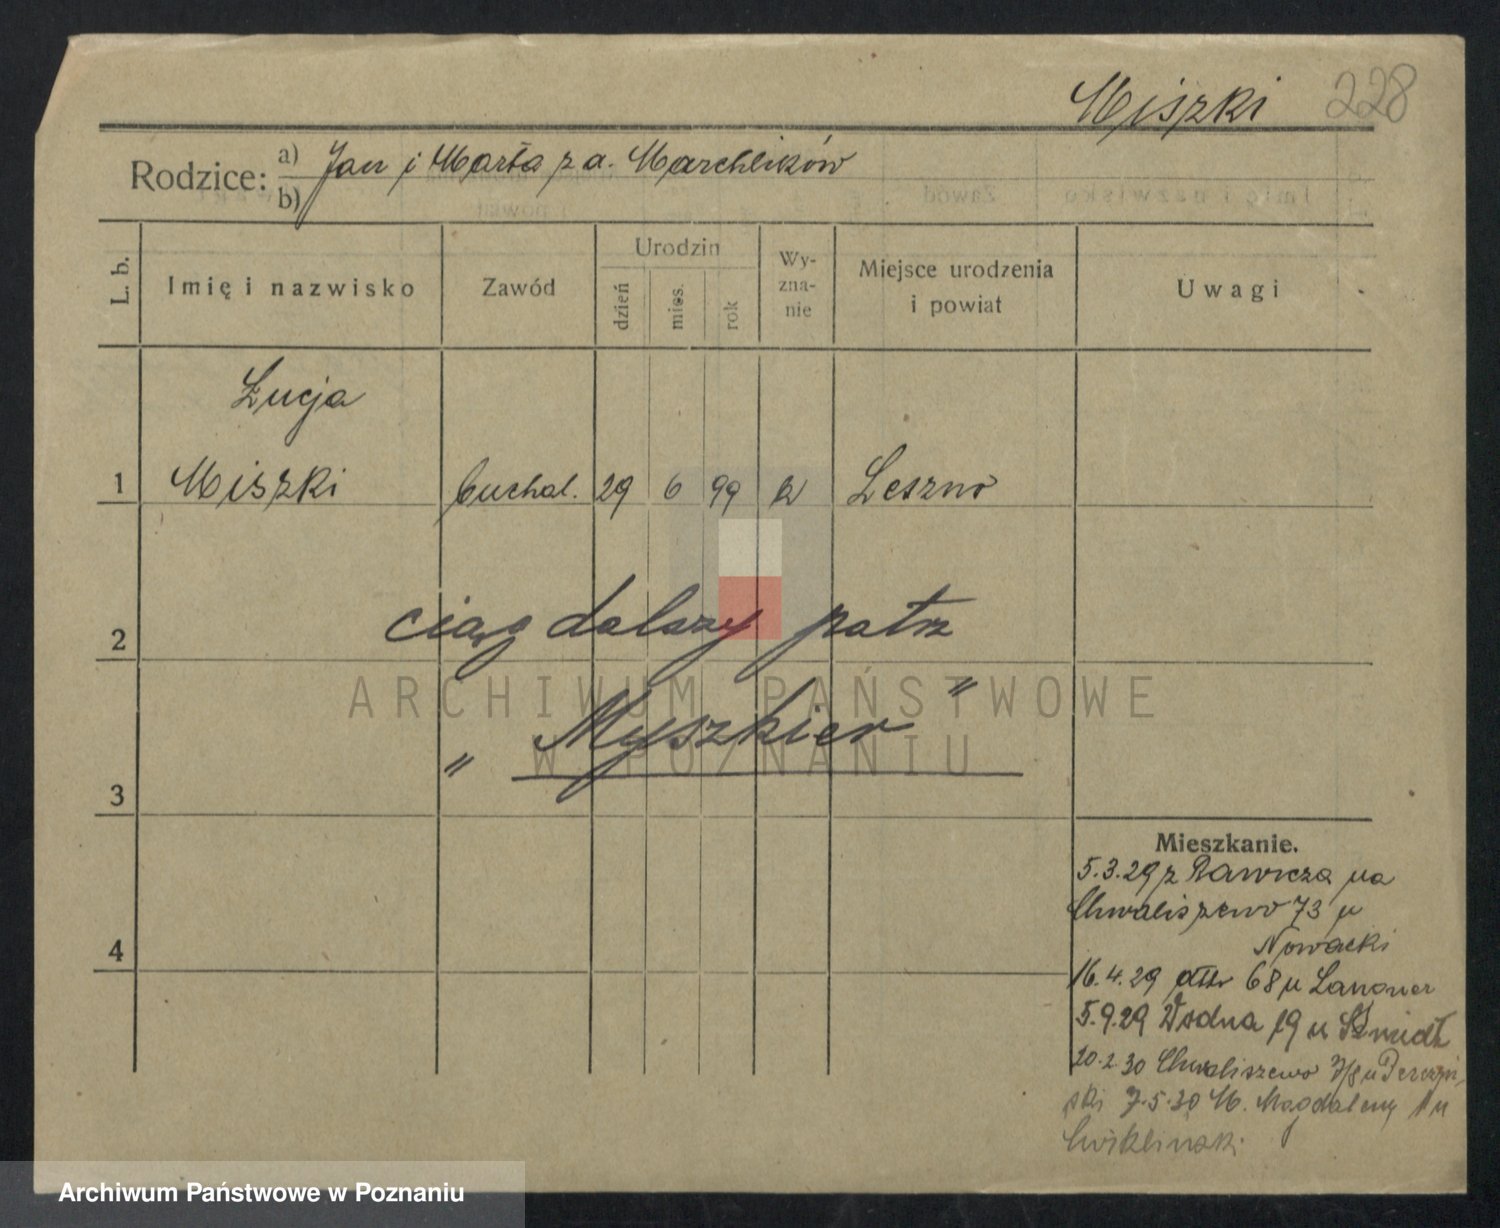 Miszki 228
Rodzice: a) Jan i Marta z d. Marchlików
b)
L. b. Imię i nazwisko Zawód Urodzin dzień mies. rok Wy-zna-nie Miejsce urodzenia i powiat Uwagi
Łucja
1 Miszki buchal. 29 6 99 k Leszno
2 ciąg dalszy patrz
3 „ Myszkier "
4
Mieszkanie.
5.3.29 z Rawicza na
Chwaliszewo 73 u
Nowacki
16.4.29 68 u
5.9.29 Wodna 19 u Szmidt
20.2.30 Chwaliszewo u
ski 7.5.30 M. Magdaleny 1 u
Ćwikliński
ARCHIWUM PAŃSTWOWE
W POZNANIU
Archiwum Państwowe w Poznaniu